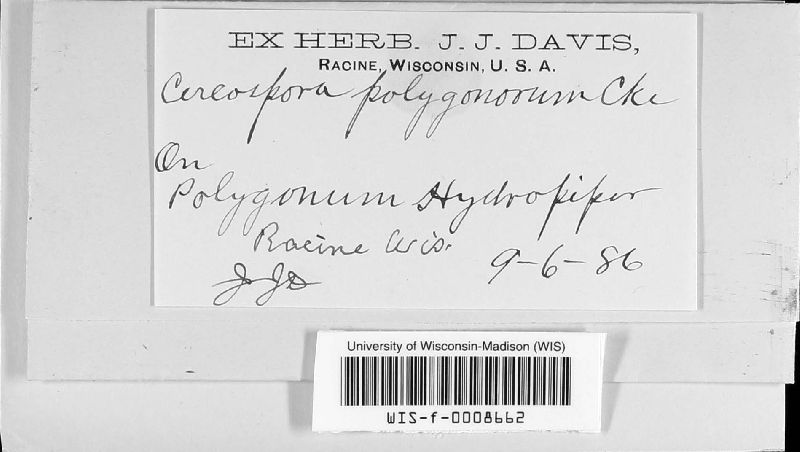 EX HERB. J. J. DAVIS,
RACINE, WISCONSIN, U. S. A.
Cercospora polygonorum Cke
On
Polygonum Hydropiper
Racine Wis.
9-6-86
JJD
University of Wisconsin-Madison (WIS)
WIS-f-0008662